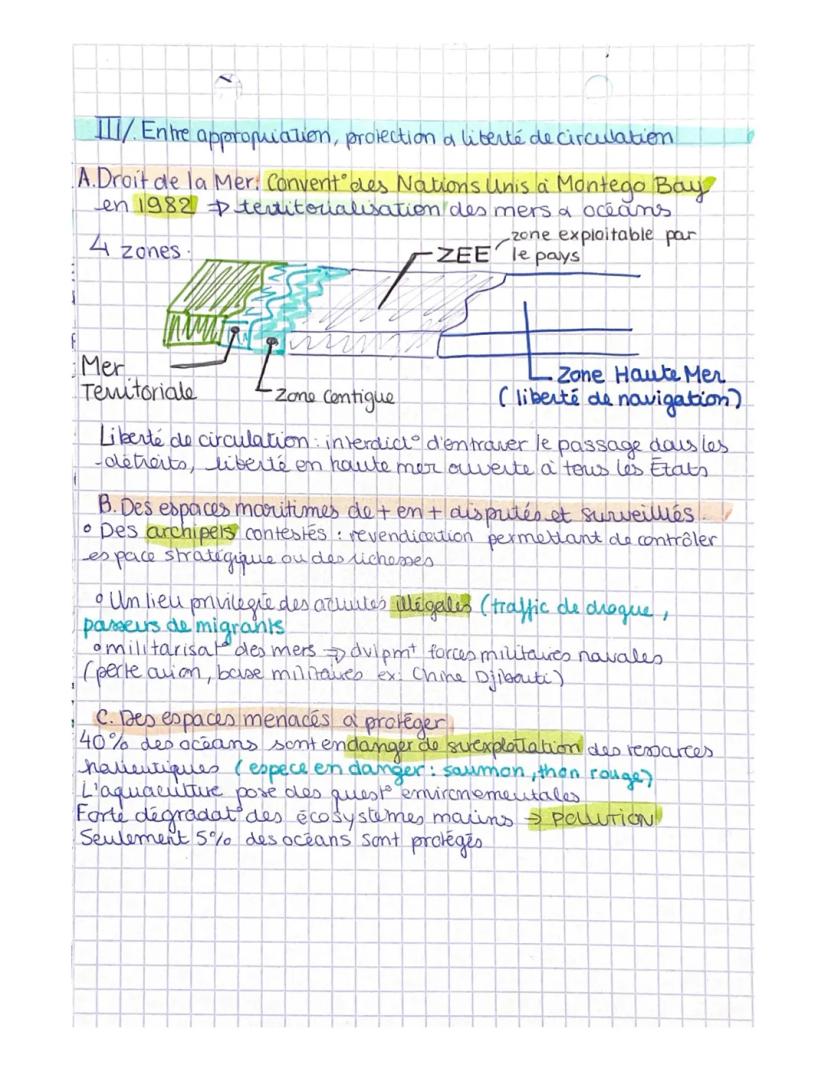 III/. Entre appropriation, protection a liberté de circulation
A. Droit de la Mer: Convent° des Nations Unis à Montego Bay
en 1982 → territorialisation des mers a océans
4 zones.
ZEE
zone exploitable par
le pays
Mer
Territoriale
Zone Contigue
Zone Haute Mer
(liberté de navigation)
Liberté de circulation : interdict° d'entraver le passage dans les
détroits, liberté en haute mer ouverte à tous les États
B. Des espaces maritimes de + en + disputés et surveillés.
• Des archipels contestés : revendication permettant de contrôler
espace stratégique ou des richesses
• Un lieu privilégié des activités illégales (traffic de drogue,
passeurs de migrants
• militarisat° des mers ⇒ dvlpmt forces militaires navales
(porte avion, base militaires ex: Chine Djibouti)
C. Des espaces menacés a protéger
40% des océans sont en danger de surexploitation des ressources
halieutiques (espece en danger : saumon, thon rouge)
L'aquaculture pose des quest° environnementales
Forte dégradat° des écosystèmes marins → POLLUTION
Seulement 5% des océans sont protégés